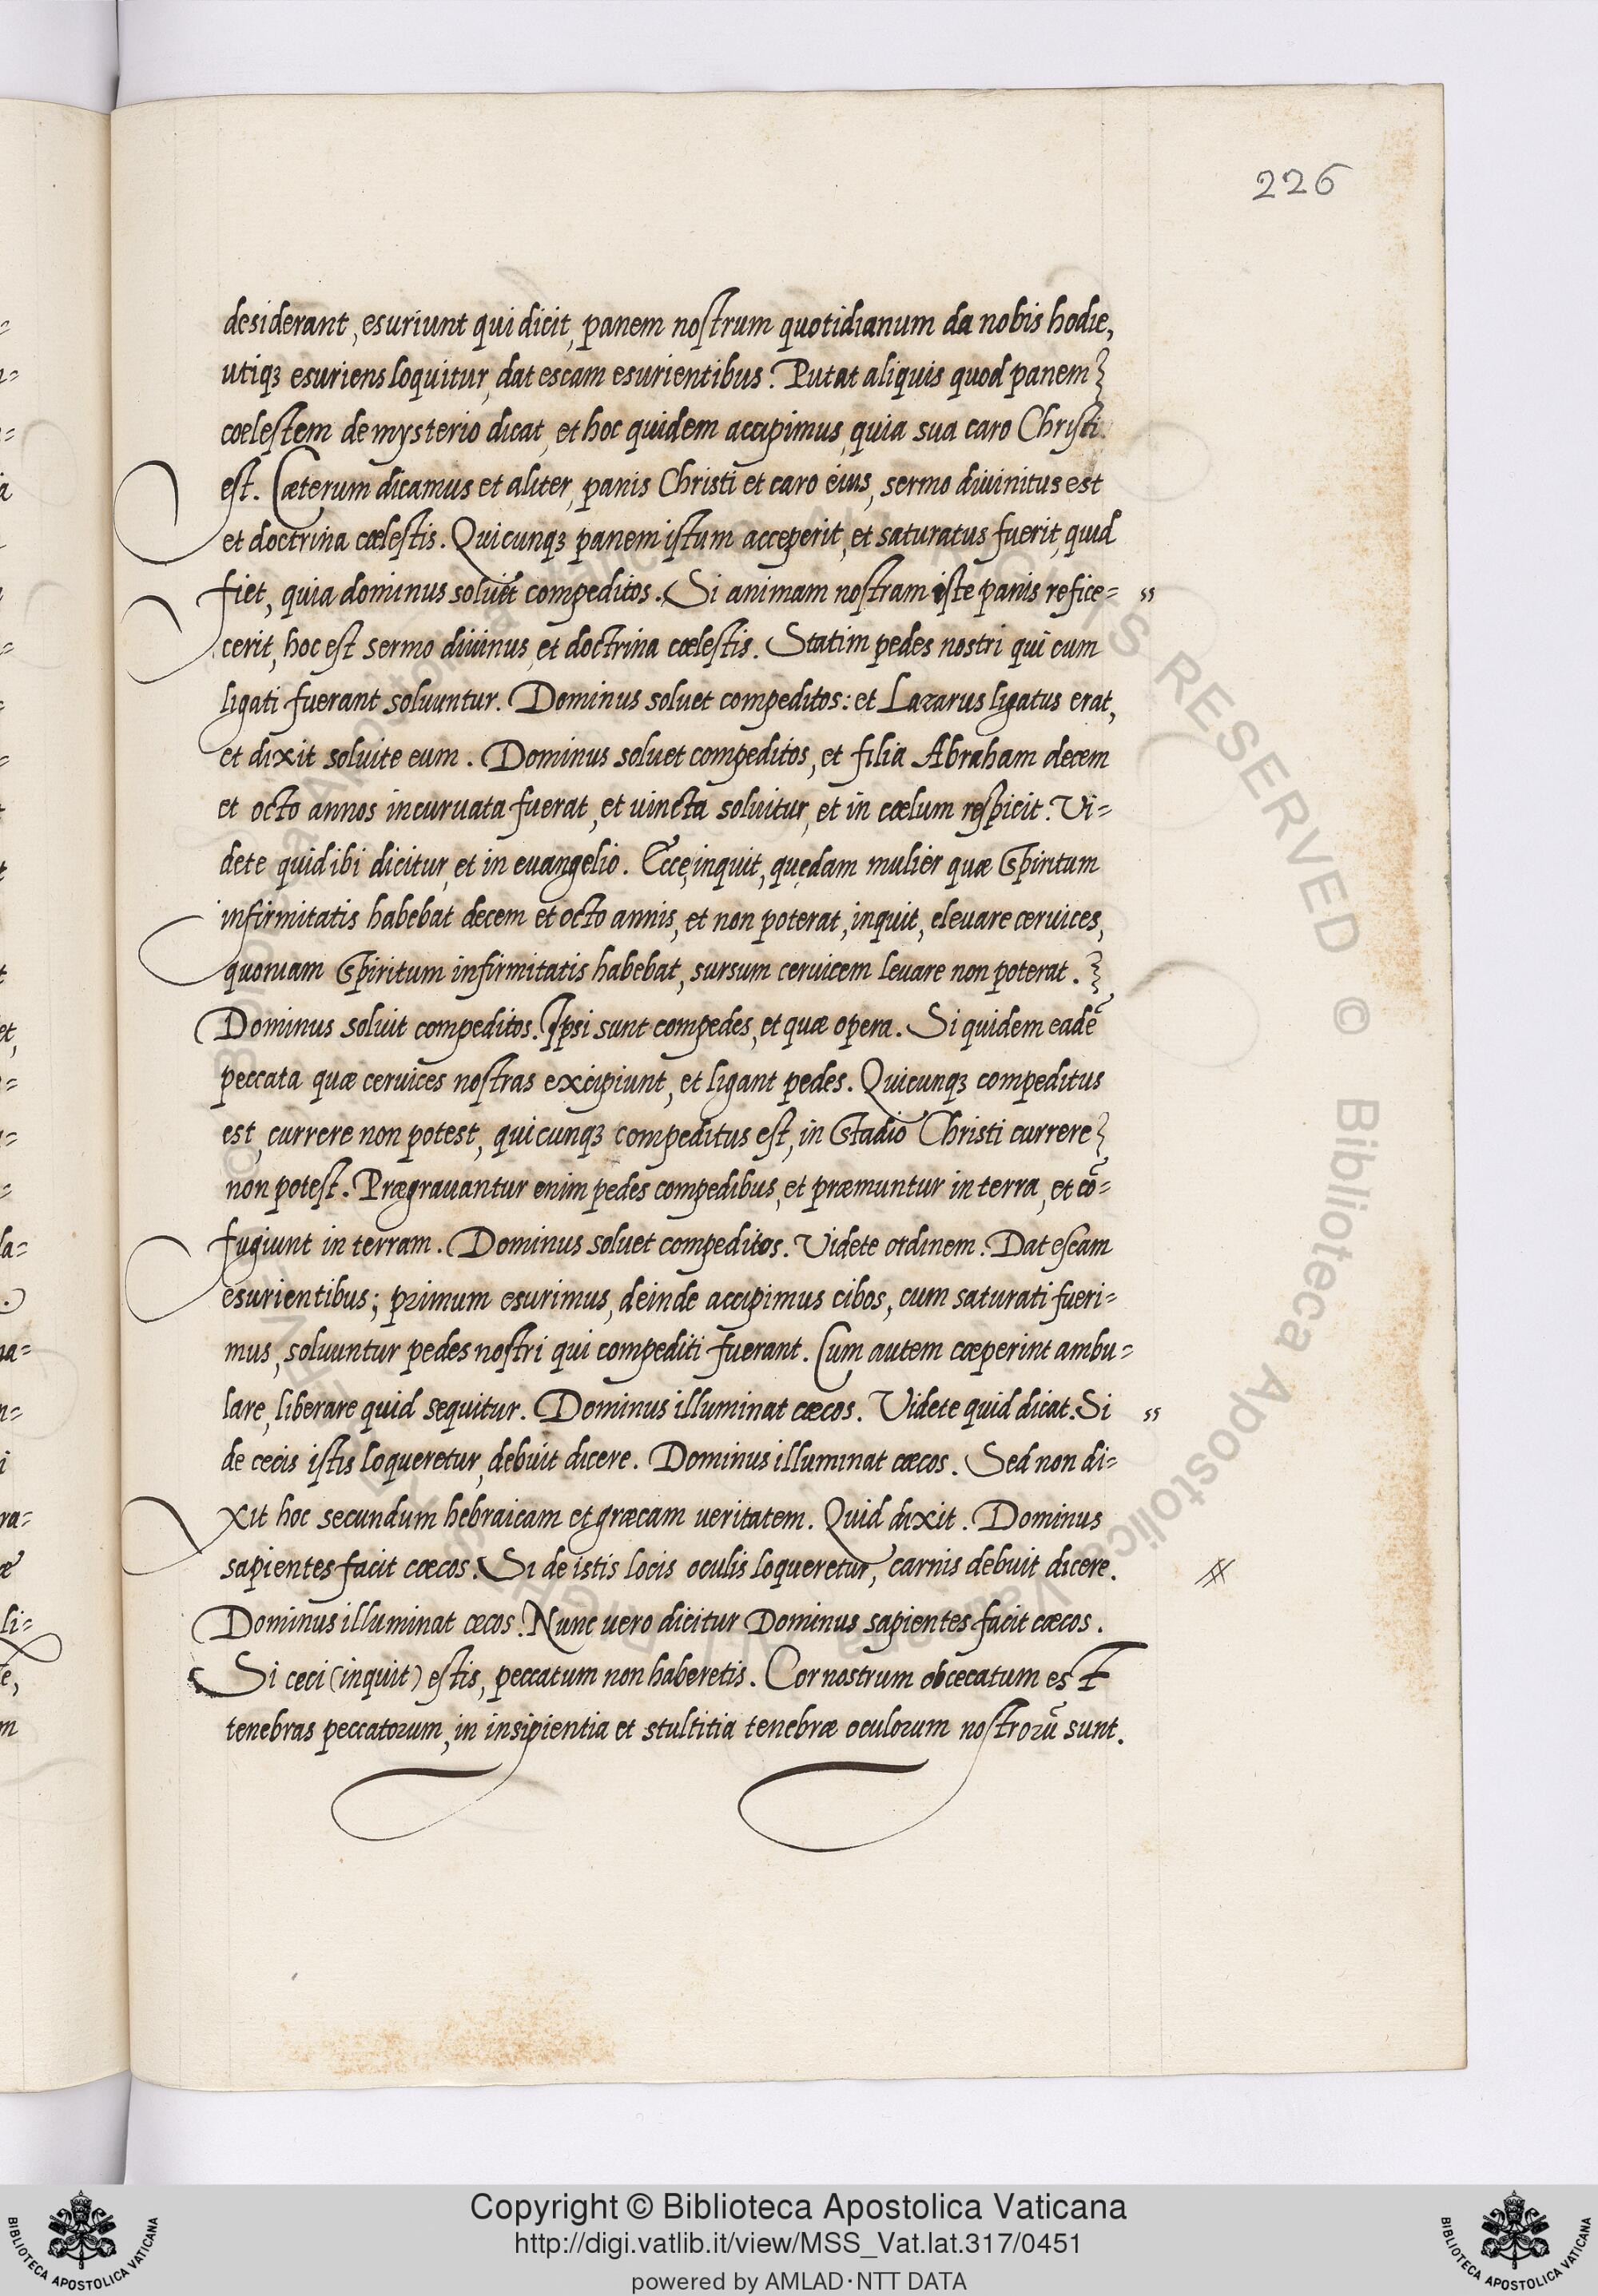 226
desiderant, esuriunt qui dicit, panem nostrum quotidianum da nobis hodie,
utiqꝫ esuriens loquitur, dat escam esurientibus. Putat aliquis quod panem
coelestem de mysterio dicat, et hoc quidem accipimus, quia sua caro Christi
est. Cæterum dicamus et aliter, panis Christi et caro eius, sermo diuinitus est
et doctrina cælestis. Quicunqꝫ panem istum acceperit, et saturatus fuerit, quid
fiet, quia dominus soluet compeditos. Si animam nostram iste panis refice= ss
cerit, hoc est sermo diuinus, et doctrina cælestis. Statim pedes nostri qui cum
ligati fuerant soluuntur. Dominus soluet compeditos: et Lazarus ligatus erat,
et dixit soluite eum. Dominus soluet compeditos, et filia Abraham decem
et octo annos incuruata fuerat, et uincta soluitur, et in cœlum respicit. Vi=
dete quid ibi dicitur, et in euangelio. Ecce, inquit, quędam mulier quæ Spiritum
infirmitatis habebat decem et octo annis, et non poterat, inquit, eleuare ceruices,
quoniam Spiritum infirmitatis habebat, sursum ceruicem leuare non poterat.
Dominus soluit compeditos. Ipsi sunt compedes, et quæ opera. Si quidem eadē
peccata quæ ceruices nostras excipiunt, et ligant pedes. Quicunqꝫ compeditus
est, currere non potest, quicunqꝫ compeditus est, in Stadio Christi currere
non potest. Prægrauantur enim pedes compedibus, et præmuntur in terra, et cō=
fugiunt in terram. Dominus soluet compeditos. Videte ordinem. Dat escam
esurientibus; primum esurimus, deinde accipimus cibos, cum saturati fueri=
mus, soluuntur pedes nostri qui compediti fuerant. Cum autem cœperint ambu=
lare, liberare quid sequitur. Dominus illuminat cæcos. Videte quid dicat. Si ss
de cecis istis loqueretur, debuit dicere. Dominus illuminat cæcos. Sed non di=
xit hoc secundum hebraicam et græcam ueritatem. Quid dixit. Dominus
sapientes facit cœcos. Si de istis locis oculis loqueretur, carnis debuit dicere.
Dominus illuminat cæcos. Nunc uero dicitur Dominus sapientes facit cæcos.
Si ceci (inquit) estis, peccatum non haberetis. Cor nostrum obcecatum est
tenebras peccatorum, in insipientia et stultitia tenebræ oculorum nostrorū sunt.
ALL RIGHTS RESERVED © Biblioteca Apostolica Vaticana
Copyright © Biblioteca Apostolica Vaticana
http://digi.vatlib.it/view/MSS_Vat.lat.317/0451
powered by AMLAD·NTT DATA
BIBLIOTECA APOSTOLICA VATICANA
BIBLIOTECA APOSTOLICA VATICANA